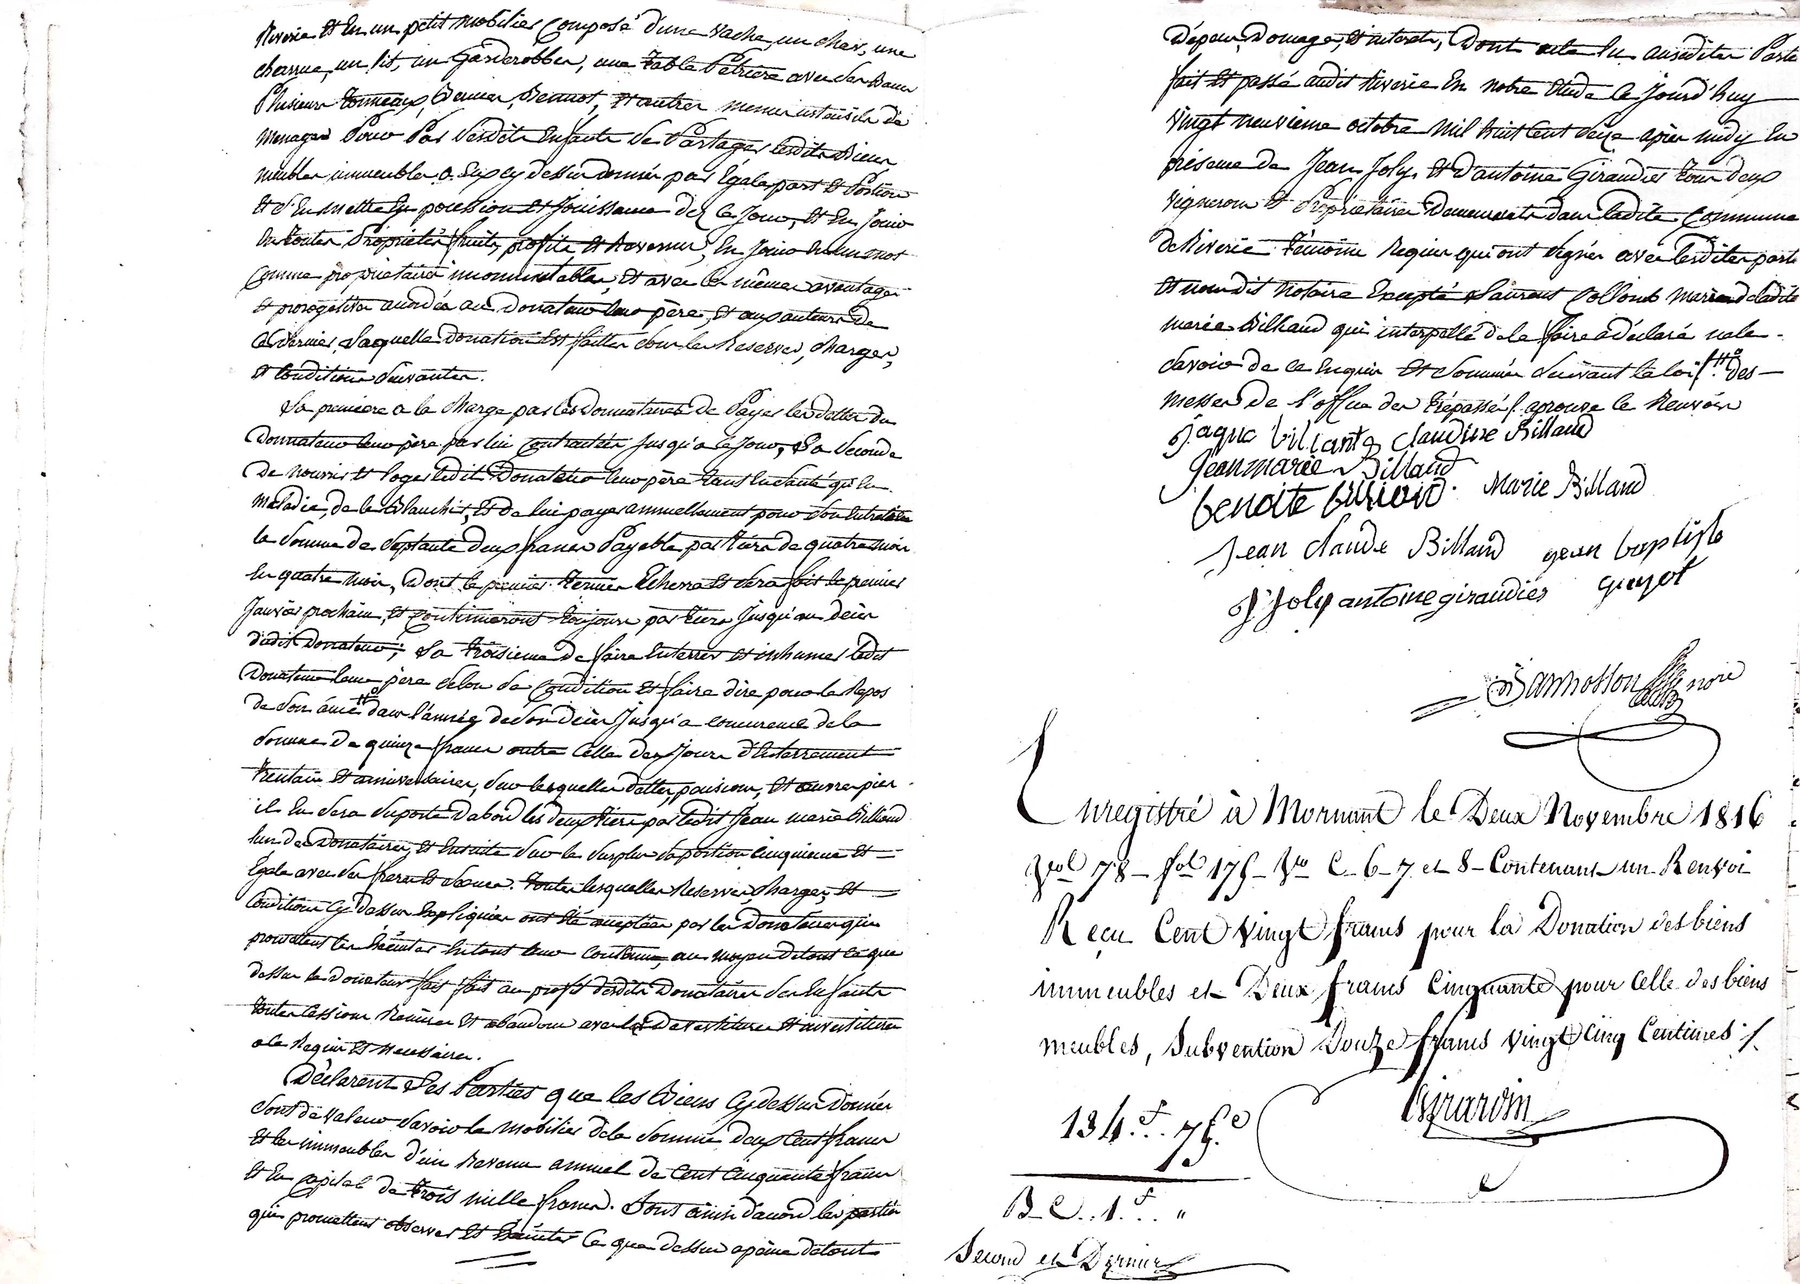 Riverie et En un petit mobilier Composé d'une vache, un char, une
charrue, un lit, un Garderobber, une Table Petriere avec ses Bancs
Plusieurs tonneaux, Bennes, Bennot, et autres menus ustensils de
menages Pour Par lesdits Enfants se Partager lesdits Biens
meubles immeubles Cy dessus donnés par Egale part et Portion
Et s'En mettre En possession et Jouissance dez ce Jour, et En Jouir
En toutes Propriétés fruits, profits et Revenus, En Jouir En un mot
Comme propriétaires incomutables, et avec les mêmes avantages
et prerogatives audit donateur leur père, et aux auteurs de
Ce dernier, Laquelle donation Est faitte sous les Reserves, charges,
et Conditions suivantes.
La premiere a la charge par les Donnataires de Payer les dettes du
Donnateur leur père par lui Contractées Jusqu'a ce Jour, La seconde
De nourrir et loger ledit Donateur leur père tant En santé qu'en
maladie, de le Blanchir, et de lui payer annuellement pour son Entretien
la somme de Septante deux francs Payable par tiers de quatre mois
En quatre mois, Dont le premier terme Echerra et sera fait le premier
Janvier prochain, et Continueront toujours par tiers Jusqu'au décès
dudit Donnateur; La troisieme de faire Enterrer et inhumer ledit
Donateur leur père selon sa Condition et faire dire pour le Repos
de son âme # dans l'année de son décès Jusqu'a concurrence de la
somme de quinze francs outre Celles des Jours d'Enterrement
trentain et anniversaires, sur lesquelles dettes, pensions, et œuvres pies
il En sera suporté d'abord les deux tiers par ledit Jean marie Billiand
l'un des Donataires, et Ensuite sur le surplus sa portion Cinquieme et
Egale avec ses freres et sœurs. Toutes lesquelles Reserves, Charges, et
Conditions Cy dessus Expliquées ont été acceptées par les Donataires qui
promettent les Exécuter En tout leur contenu, au moyen de tout ce que
dessus le Donateur fait au profit desdits Donataires ses Enfants
toutes Cessions Remises et abandons avec les Devestitures et investitures
a ce Requis et necessaires.
Déclarent Les Parties que les Biens Cy dessus Donnés
sont de valeur savoir le mobilier de la somme deux Cent francs
et les immeubles d'un Revenu annuel de Cent Cinquante francs
et En capital de trois mille francs. Sont ainsi d'accord les parties
qui promettent observer Et Exécuter Ce que dessus a peine de tous
Dépens, Domages, et interets, Dont acte Lu auxdites Parties
fait et passé audit Riverie En notre Etude le Jourd'huy
vingt neuvieme octobre mil huit Cent seize après midy En
présence de Jean Joly, et d'antoine Giraudier tous deux
vignerons et Propriétaires Demeurants dans ladite Commune
de Riverie Témoins Requis qui ont signés avec lesdites parties
et nous dit notaire Excepté Laurent Collomb mari de ladite
marie Billiaud qui interpellé de la faire a déclaré ne le
savoir de ce enquis et sommé suivant la loi # des
messes de l'office des trépassés aprouvé le Renvoi
Claudine Billand
Jeanmarie Billand
benoite Marie Billand
Jean Claude Billand jean baptiste
J Joly antoine giraudier guyot
Enregistré à Mornant le Deux Novembre 1816
Vol 78 - fol 175 - Vo C. 6-7 et 8 - Contenant un Renvoi
Reçu Cent vingt francs pour la Donation des biens
immeubles et Deux francs Cinquante pour Celle des biens
meubles, Subvention Douze francs vingt Cinq Centimes
134.f.. 75.c
Girardin
B C.. 1.f... "
Second et Dernier